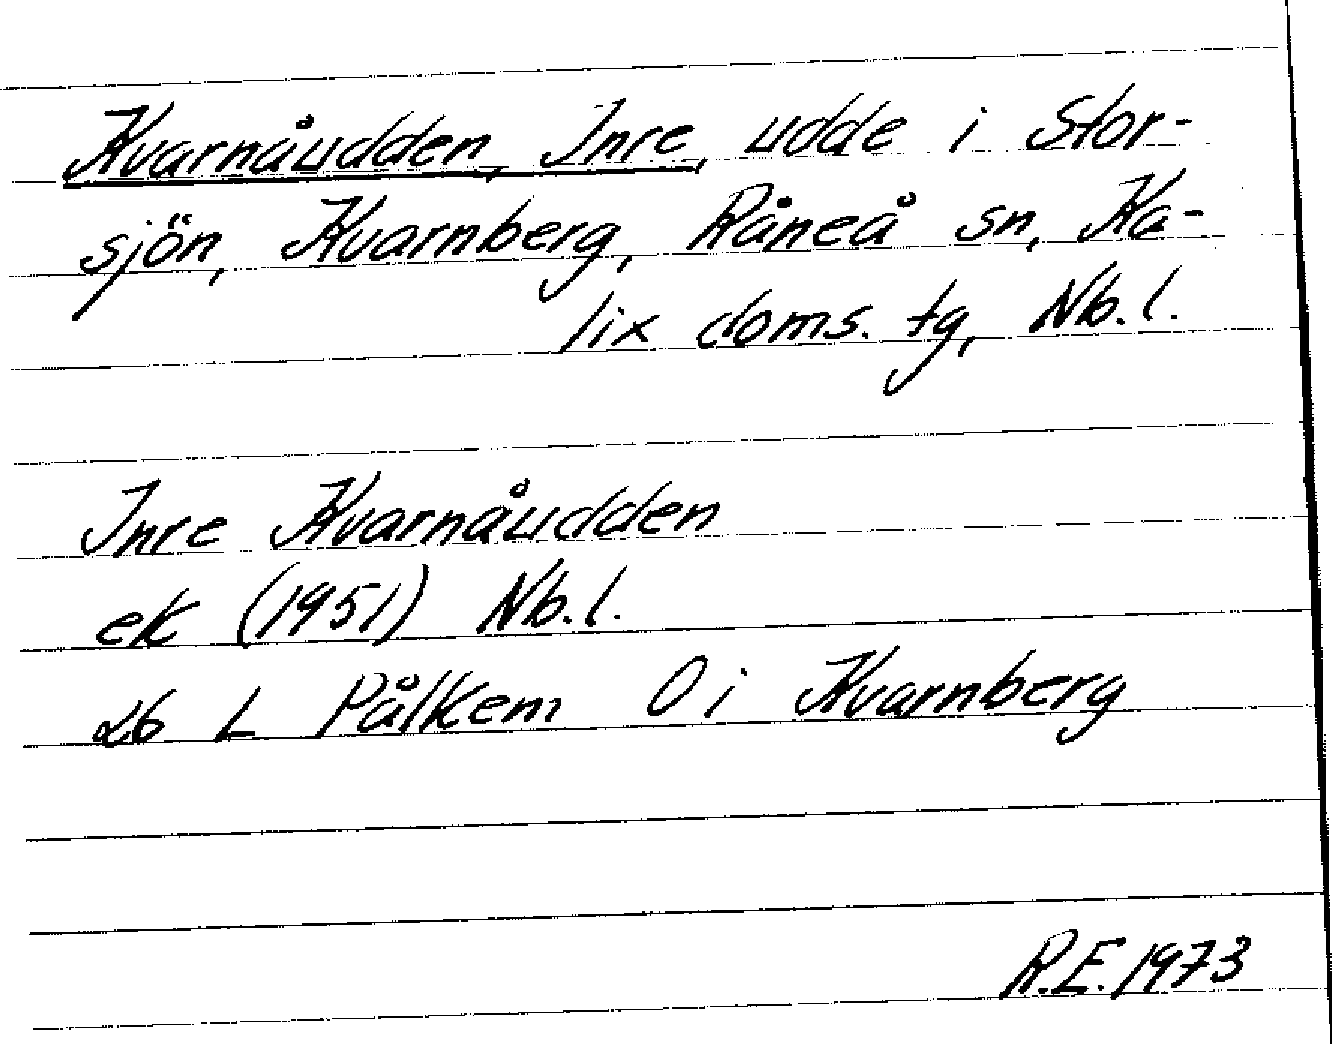 Kvarnåudden, Inre, udde i Stor-
sjön, Kvarnberg, Råneå sn, Ka-
lix doms. tg, Nb. l.
Inre Kvarnåudden
ek (1951) Nb. l.
26 L Pålkem 0 i Kvarnberg
R.E. 1973